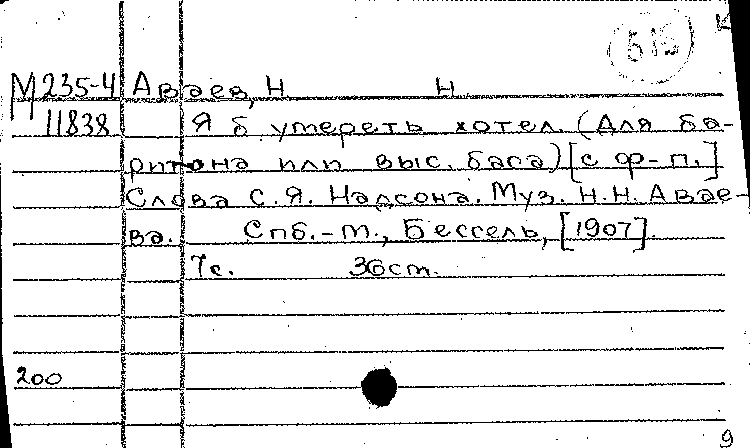 515 К
М235-4 Аваев, Н Н
11838 Я б утереть хотел. (Для ба-
ритона или выс. баса) [с ф-п.]
Слова С. Я. Надсона. Муз. Н.Н. Авае-
ва. Спб.-М., Бессель, [1907].
7с. 36ст.
200
9